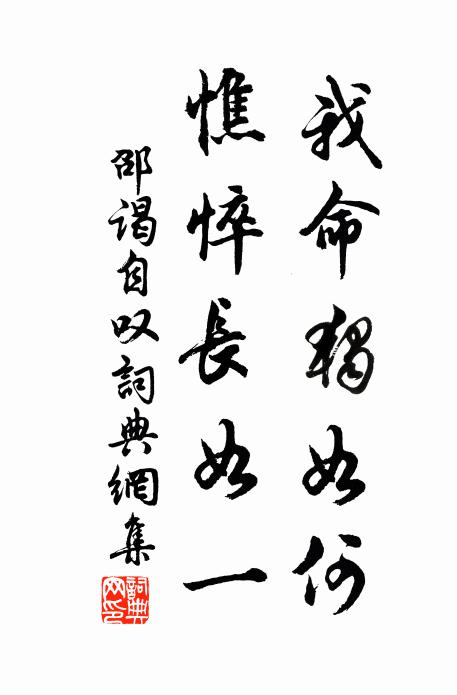 我命獨如何
憔悴長如一
邵谒自叹詞典網集
詞典网印